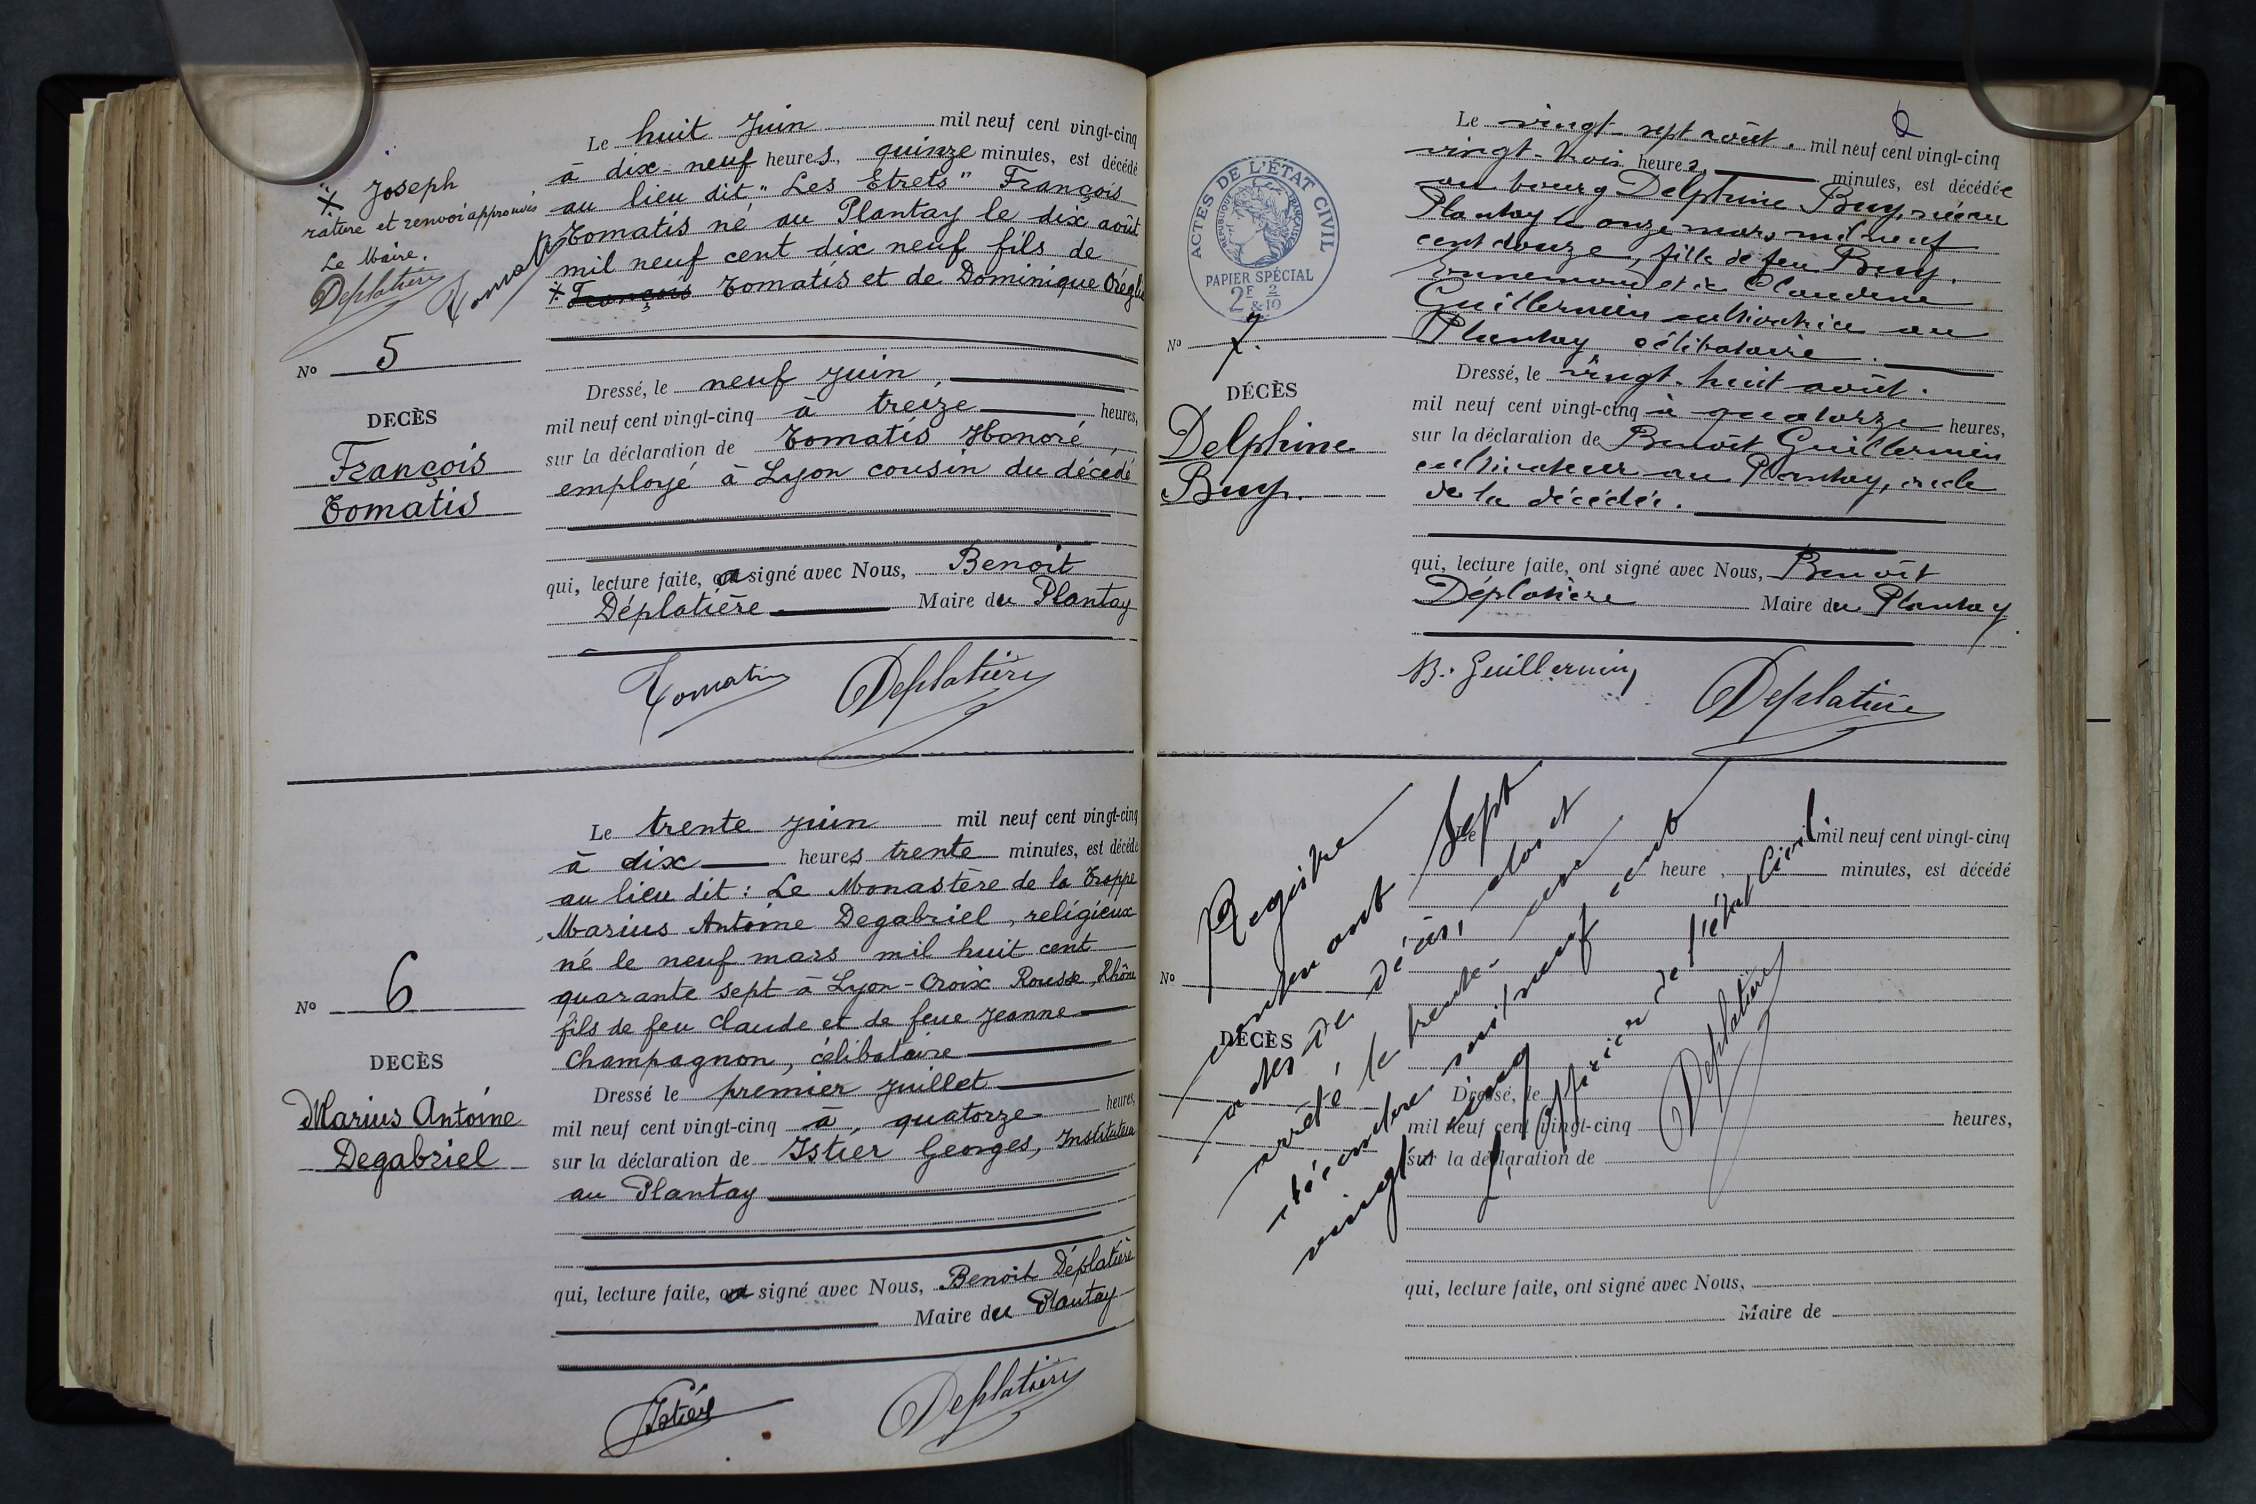 Le huit Juin mil neuf cent vingt-cinq
à dix-neuf heures, quinze minutes, est décédé
au lieu dit "Les Etrets" François
Tomatis né au Plantay le dix août
mil neuf cent dix neuf fils de
⁒ François Tomatis et de Dominique Oréglia
⁒ Joseph
rature et renvoi approuvés
Le Maire.
Déplatière Tomatis
No 5
DÉCÈS
François
Tomatis
Dressé, le neuf Juin,
mil neuf cent vingt-cinq à treize heures,
sur la déclaration de Tomatis Honoré
employé à Lyon cousin du décédé
qui, lecture faite, a signé avec Nous, Benoit
Déplatière Maire du Plantay
Tomatis Déplatière
Le trente Juin mil neuf cent vingt-cinq
à dix heures trente minutes, est décédé
au lieu dit : Le Monastère de la Trappe
Marius Antoine Degabriel, religieux
né le neuf mars mil huit cent
quarante sept à Lyon-Croix Rousse, Rhône
fils de feu Claude et de feue Jeanne
Champagnon, célibataire
No 6
DECÈS
Marius Antoine
Degabriel
Dressé le premier Juillet
mil neuf cent vingt-cinq à quatorze heures,
sur la déclaration de Istier Georges, Instituteur
au Plantay
qui, lecture faite, a signé avec Nous, Benoit Déplatière
Maire du Plantay
Istier Déplatière
ACTES DE L'ÉTAT CIVIL
RÉPUBLIQUE FRANÇAISE
PAPIER SPÉCIAL
2F & 2/10
Le vingt sept août. mil neuf cent vingt-cinq
vingt-trois heures, minutes, est décédée
au bourg Delphine Buy, née au
Plantay le onze mars mil neuf
cent douze, fille de feu Buy.
sunemond et de Claudine
Guillermin cultivatrice au
Plantay célibataire.
No 7.
DÉCÈS
Delphine
Buy.
Dressé, le vingt-huit août.
mil neuf cent vingt-cinq à quatorze heures,
sur la déclaration de Benoît Guillermin
cultivateur au Plantay, oncle
de la décédée.
qui, lecture faite, ont signé avec Nous, Benoît
Déplatière Maire du Plantay
B. Guillermin Déplatière
Le mil neuf cent vingt-cinq
heure minutes, est décédé
No
DÉCÈS
Dressé, le
mil neuf cent vingt-cinq heures,
sur la déclaration de
qui, lecture faite, ont signé avec Nous,
Maire de
Registre
contenant Sept
actes de décès, clos et
arrêté le trente-une
décembre mil neuf cent
vingt-cinq
L'officier de l'état civil
Déplatière